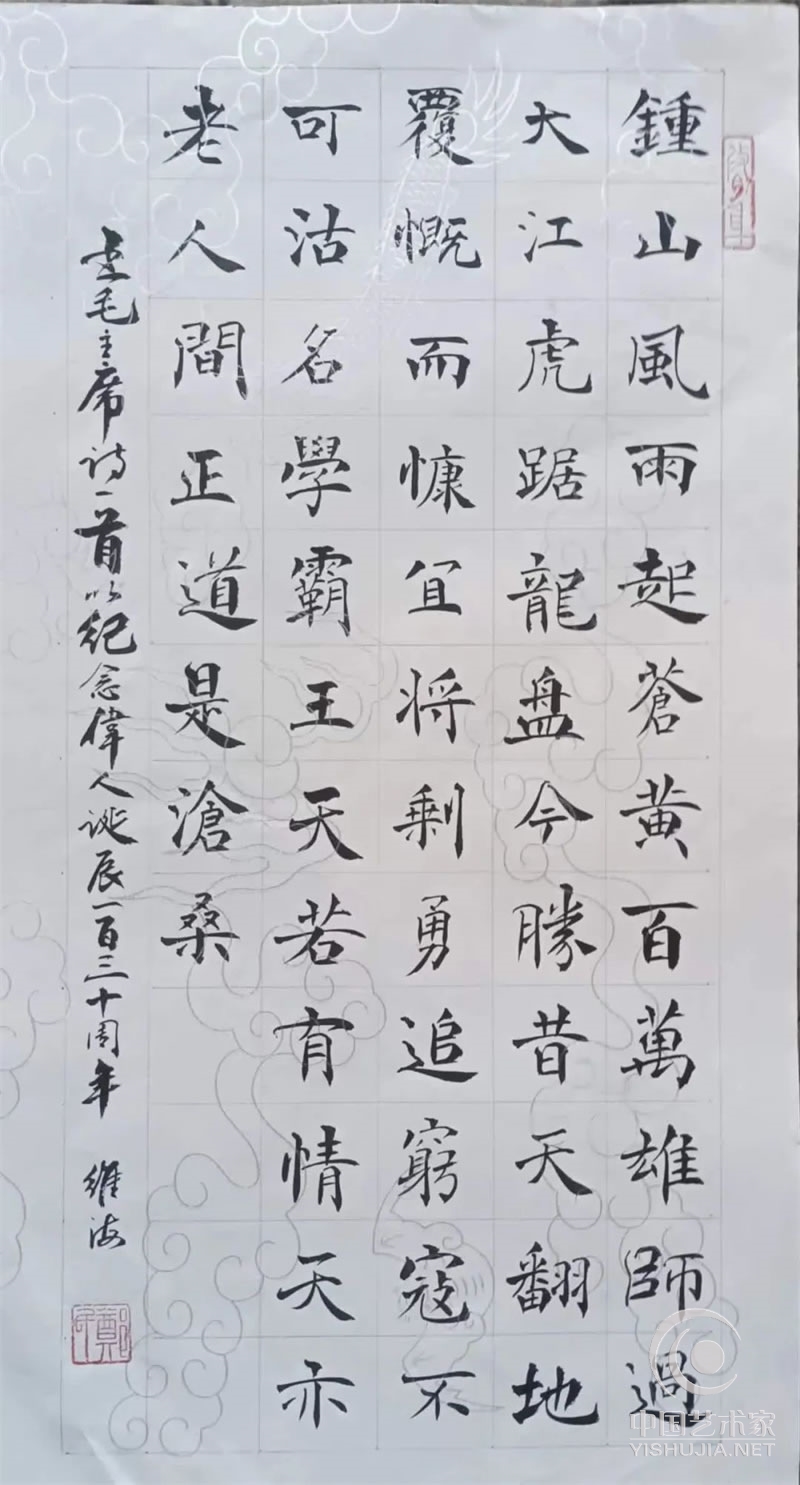 鍾山風雨起蒼黃百萬雄師過
大江虎踞龍盤今勝昔天翻地
覆慨而慷宜将剩勇追窮寇不
可沽名學霸王天若有情天亦
老人間正道是滄桑
書毛主席诗一首以紀念偉人诞辰一百三十周年 維海
中国艺术家
YISHUJIA.NET